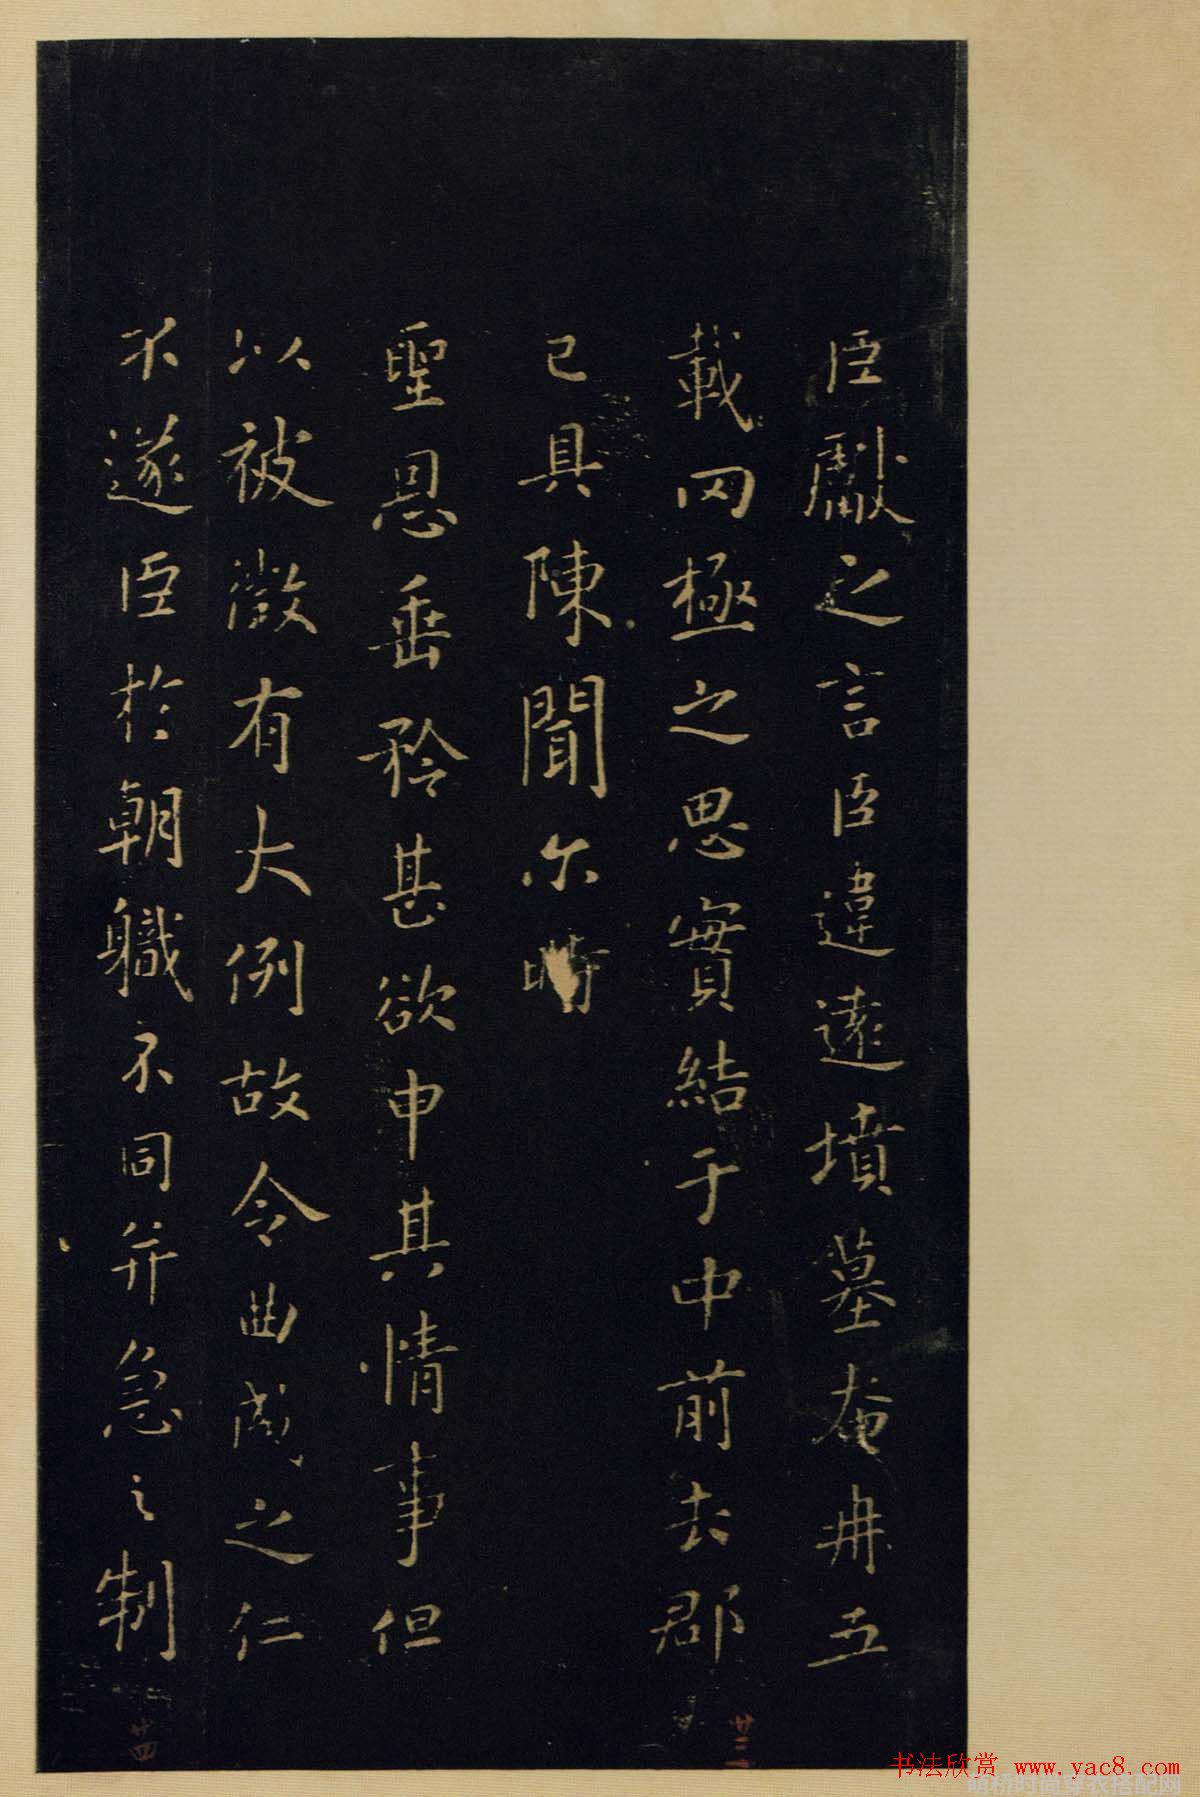 臣獻之言臣違遠墳墓奄冉五
載罔極之思實結于中前去郡
已具陳聞尔時
聖恩垂矜甚欲申其情事但
以被徵有大例故令曲成之仁
不遂臣於朝職不同并急之制
廿三
廿四
书法欣赏 www.yac8.com
萌桥时尚穿衣搭配网